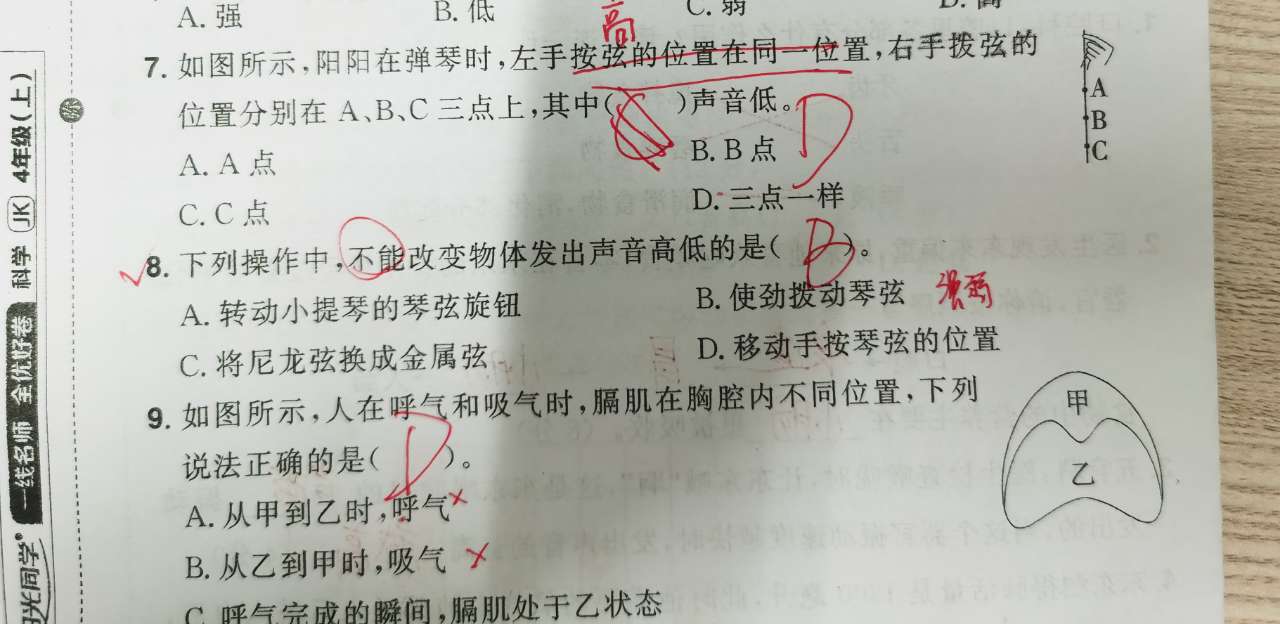 A. 强 B. 低 C. 弱 D. 高
高
7. 如图所示,阳阳在弹琴时,左手按弦的位置在同一位置,右手拨弦的
位置分别在 A、B、C 三点上,其中( )声音低。
D
A. A 点 B. B 点
C. C 点 D. 三点一样
A
B
C
8. 下列操作中,不能改变物体发出声音高低的是( B )。
A. 转动小提琴的琴弦旋钮 B. 使劲拨动琴弦 强弱
C. 将尼龙弦换成金属弦 D. 移动手按琴弦的位置
9. 如图所示,人在呼气和吸气时,膈肌在胸腔内不同位置,下列
说法正确的是( D )。
A. 从甲到乙时,呼气 ×
B. 从乙到甲时,吸气 ×
C. 呼气完成的瞬间,膈肌处于乙状态
甲
乙
一线名师 全优好卷 科学 JK 4年级(上)
阳光同学